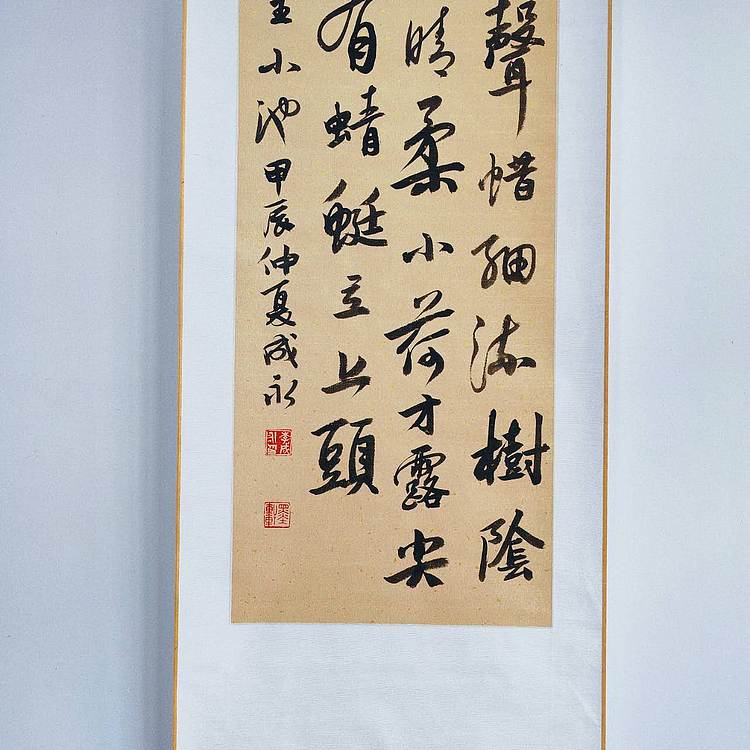 聲惜細流樹陰
晴柔小荷才露尖
有蜻蜓立上頭
小池甲辰仲夏成永
李成永印